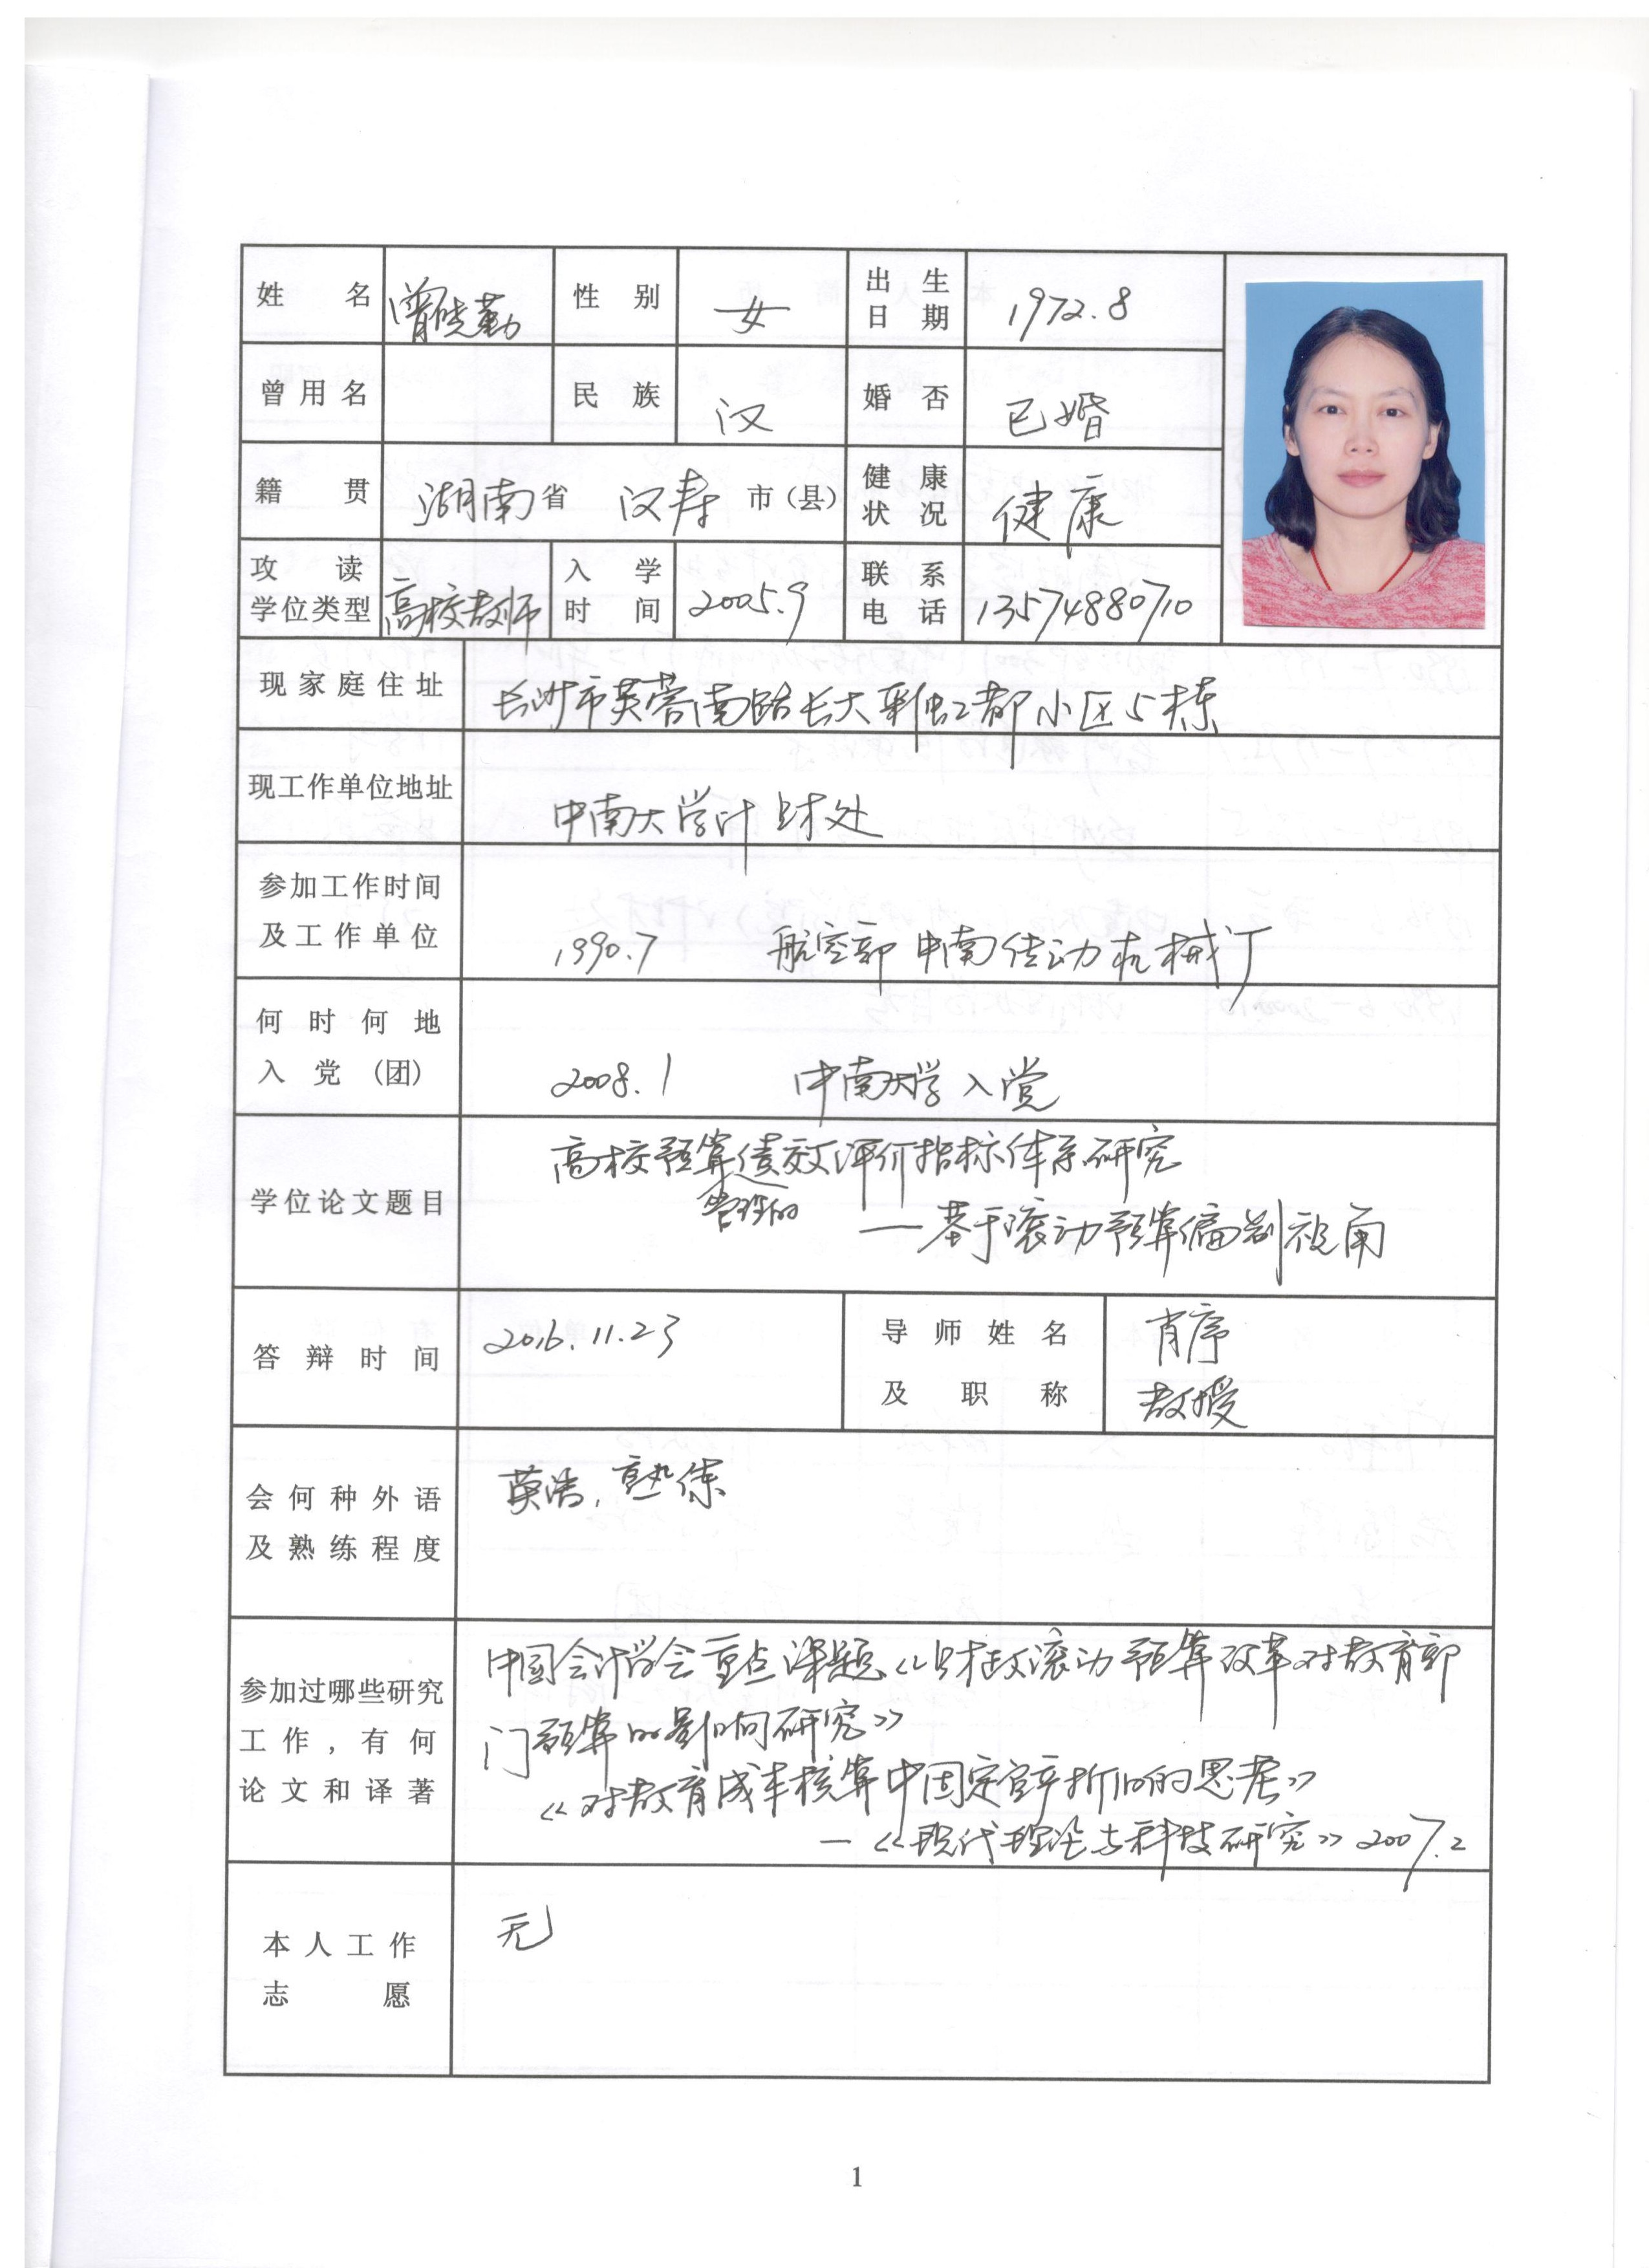 姓名 曾晓勤 性别 女 出生日期 1972.8
曾用名 民族 汉 婚否 已婚
籍贯 湖南省 汉寿 市（县） 健康状况 健康
攻读学位类型 高校教师 入学时间 2005.9 联系电话 13574880710
现家庭住址 长沙市芙蓉南路长大彩虹都小区5栋
现工作单位地址 中南大学计财处
参加工作时间及工作单位 1990.7 航空部中南传动机械厂
何时何地入党（团） 2008.1 中南大学入党
学位论文题目 高校预算管理的绩效评价指标体系研究
—基于滚动预算编制视角
答辩时间 2016.11.23 导师姓名及职称 肖序 教授
会何种外语及熟练程度 英语，熟练
参加过哪些研究工作，有何论文和译著 中国会计学会重点课题《财政滚动预算改革对教育部
门预算的影响研究》
《对教育成本核算中固定资产折旧的思考》
—《现代理论与科技研究》2007.2
本人工作志愿 无
1